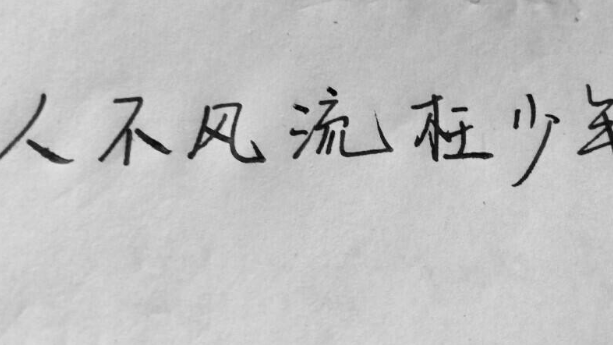 人不风流枉少年